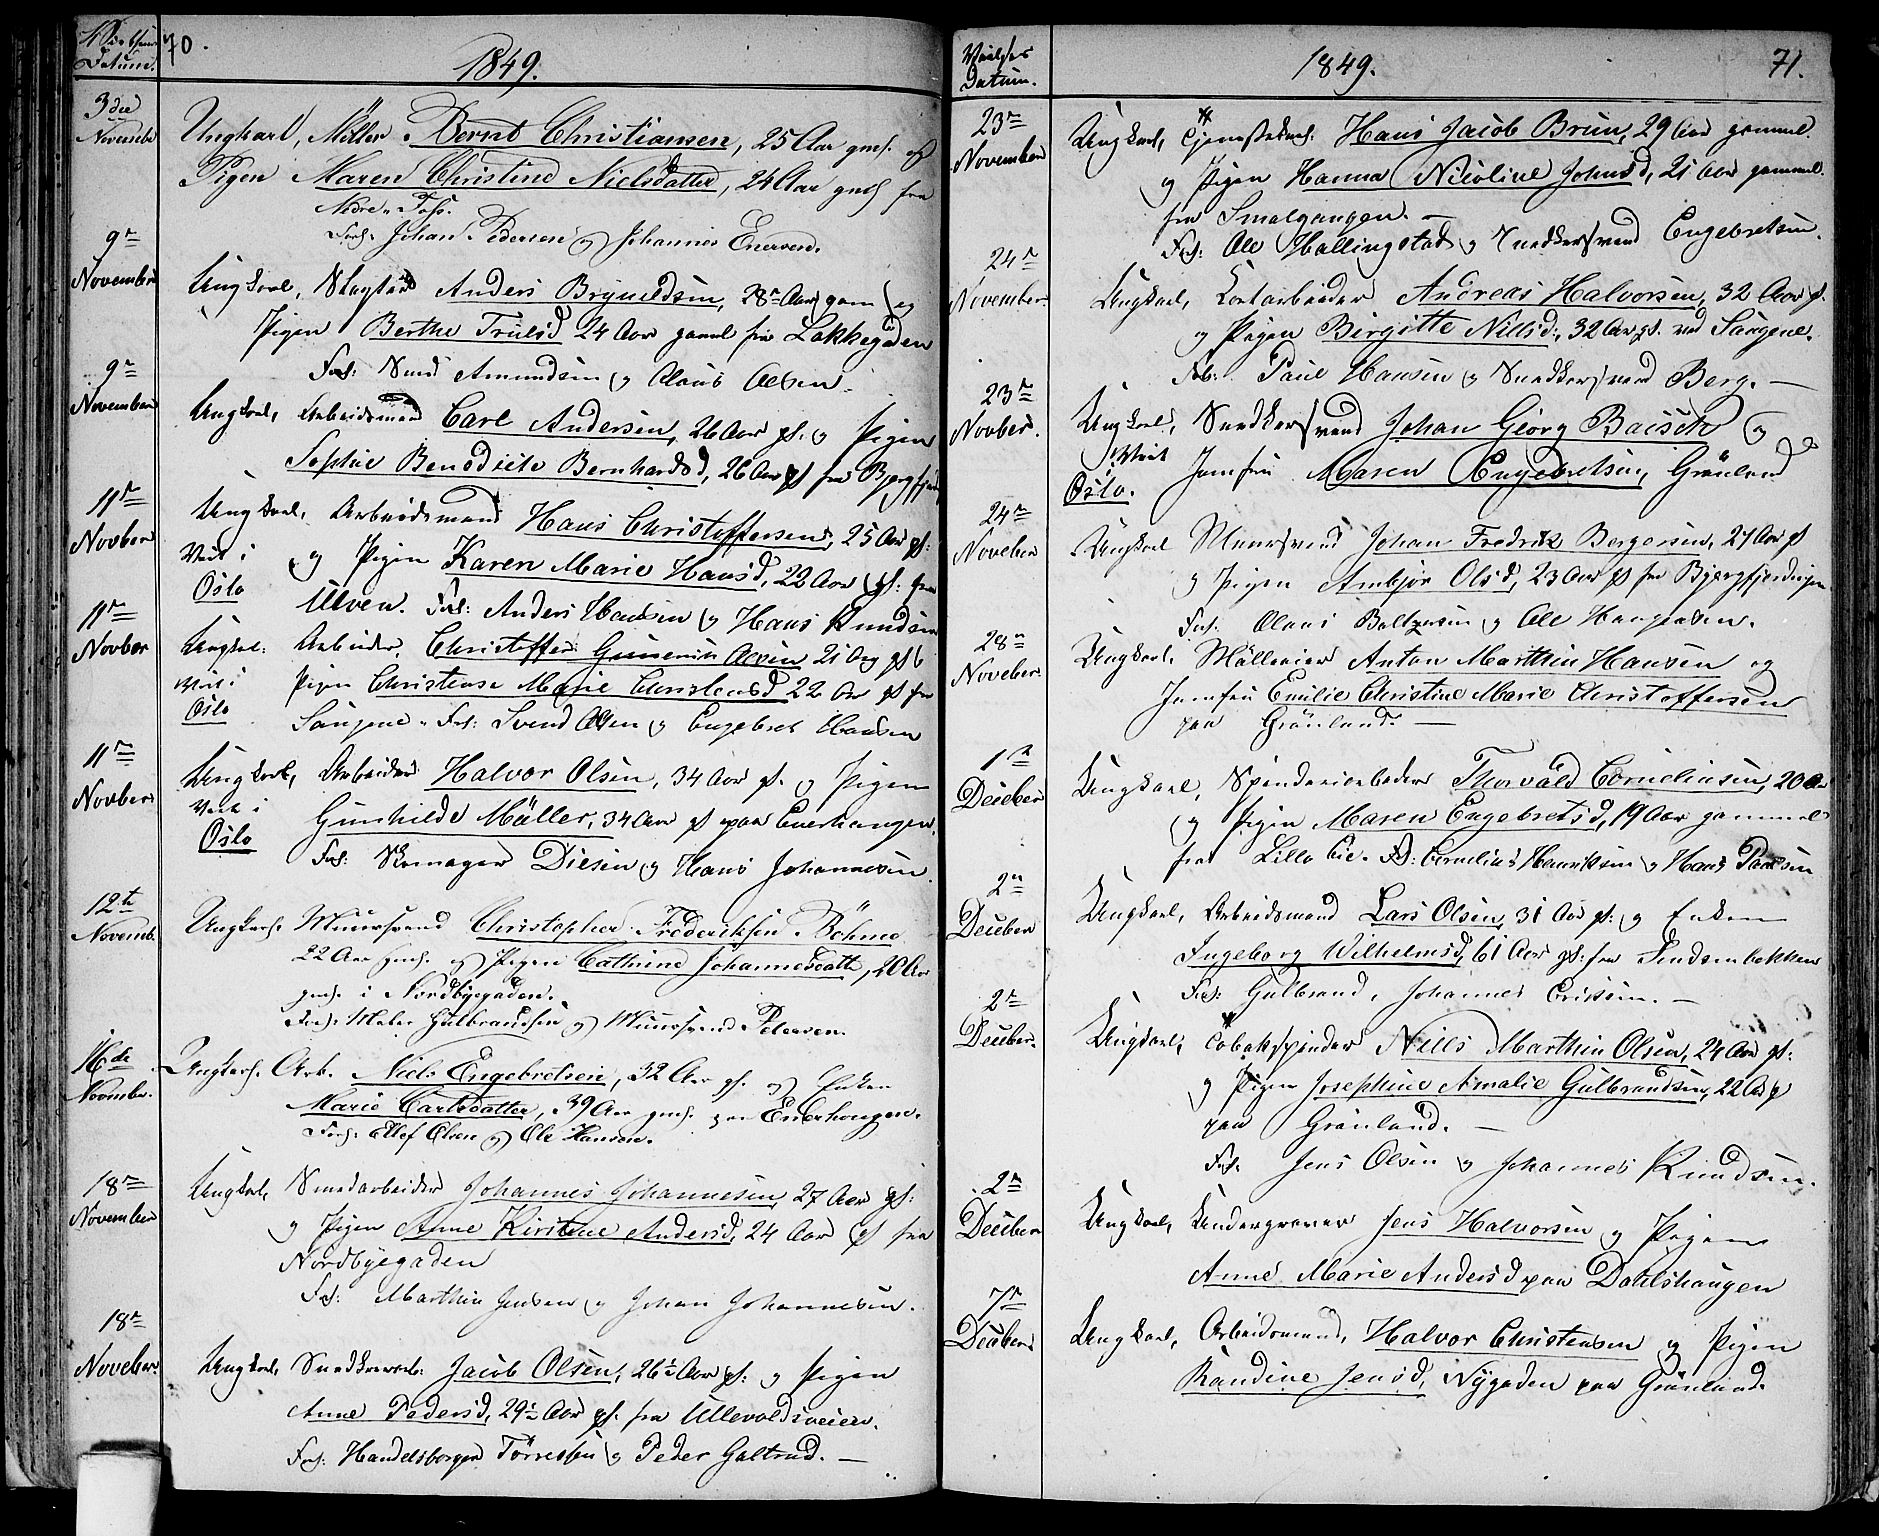 70.
1849.
3die
November
Ungkarl, Möller Bernt Christiansen, 25 Aar gml. og
Pigen Maren Christine Nielsdatter, 24 Aar gml fra
Nedre Foss.
Forl: Johan Pedersen og Johannes Enersen.
9n
November
Ungkarl, Slagter Anders Brynildsen, 28 Aar gam og
Pigen Berthe Trulsd 24 Aar gaml fra Lakkegaden
Forl: Amundsen og Olaus Olsen.
9n
November
Ungkarl, Arbeidsmand Carl Andersen, 26 Aar gl. og Pigen
Sophie Benedicte Bernhardsd, 26 Aar gl fra Bjergfj
11n
Novber
Ungkarl, Arbeidsmand Hans Christoffersen, 25 Aar gl:
Viet i
Oslo
og Pigen Karen Marie Hansd, 22 Aar gl: fra
Ulven. Forl: Anders Hansen og Hans Knudsen
11n
Novber
Ungkal: Arbeider, Christoffer Olsen 21 Aar gl
Viet i
Oslo
Pigen Christense Marie Christensd 22 Aar gl fra
Saugene. Forl: Svend Olsen og Engebret Hansen
11n
Novber
Ungkarl, Arbeider Halvor Olsen, 34 Aar gl. og Pigen
Viet i
Oslo
Gunhilde Möller, 34 Aar gl paa Enerhaugen
Forl: Skomager Diesen og Hans Johannesen
12te
Novemb.
Ungkarl. Muursvend Christopher Frederiksen Böhme
22 Aar gml. og Pigen Cathrine Johannesdatte, 20 Aar
gml. i Nordbyegaden.
Forl: Maler Gulbrandsen og Muursvend Petersen.
16de
November.
Ungkarl. Arb. Niels Engebretsen, 32 Aar gl. og Enken
Marie Carlsdatter, 39 Aar gml. paa Enerhougen.
Forl: Ellef Olsen og Ole Hansen.
18n
November
Ungkarl, Smedarbeider Johannes Johannesen, 27 Aar gl:
og Pigen Anne Kirstine Andersd, 24 Aar gl fra
Nordbyegaden
Forl: Marthin Jensen og Johan Johannesen.
18n
Noveber.
Ungkarl, Jacob Olsen, 26½ Aar gl: og Pigen
Anne Pedersd, 29½ Aar gl. fra Ullevoldsveien.
Forl: Handelsborger Torressen og Peder Galtrud.
Vielses
Datum.
1849.
71.
23n
November
Ungkarl, Tjenestekarl: Hans Jacob Brun, 29 Aar gammel.
og Pigen Hanna Nicoline Johnsd, 21 Aar gammel.
fra Smalgangen.
Forl: Ole Hallingstad og Snedkersvend Engebretsen.
24n
November.
Ungkarl, Andreas Halvorsen, 32 Aar gl.
og Pigen Birgitte Nilsd:, 32 Aar gl. ved Saugene.
Forl: Paul Hansen og Snedkersvend Berg.
23n
Novber.
Ungkarl, Snedkersvend Johan Georg Baisch og
Viet
Oslo.
Jomfru Maren Engebretsen, Grönland
24n
Noveber
Ungkarl Muursvend Johan Fredrik Bergersen, 21 Aar gl
og Pigen Ambjör Olsd, 23 Aar gl fra Bjergfjerdingen
Forl. Olaus Baltzersen og Ole Haagensen.
28n
Noveber.
Ungkarl. Anton Marthin Hansen og
Jomfru Emilie Christine Marie Christoffersen
paa Grönland.
1n
Deceber
Ungkarl, Spinderiarbeider Thorvald Corneliusen, 20 Aar
og Pigen Maren Engebretsd, 19 Aar gammel
fra Lilleborg Forl: Cornelius Henriksen og Hans Paulsen
2n
Deceber
Ungkarl, Arbeidsmand Lars Olsen, 31 Aar gl: og Enken
Ingeborg Wilhelmsd, 61 Aar gl: fra
Forl: Gulbrand, Johannes Eriksen.
2n
Deceber.
Ungkarl, Tobakspinder Nills Marthin Olsen, 24 Aar gl:
og Pigen Josephine Amalie Gulbrandsen, 22 Aar gl
paa Grönland.
Forl. Jens Olsen og Johannes Knudsen.
2n
Deceber
Ungkarl, Undergraver Jens Halvorsen og Pigen
Anne Marie Andersd paa Dahlshaugen
7n
Deceber
Ungkarl, Arbeidsmand, Halvor Christensen og Pigen
Randine Jensd, Nygaden paa Grönland.